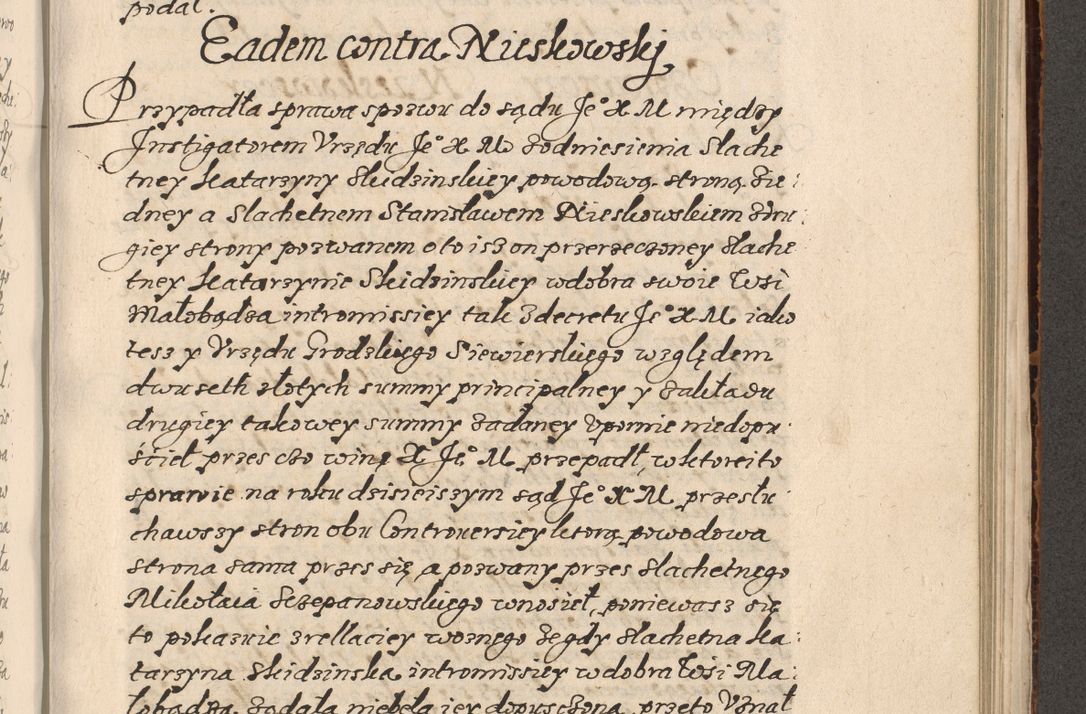 podal.
Eadem contra Nieskowskj
Przypadła sprawa spozwu do sądu Je° X M między
Instigatorem Vrzędu Je° X M zodniesienia slache
tney Katarzyny Skidzinskiey powodową stroną zie:
dney a slachetnem Stanisławem Nieskowskiem zdru:
giey strony pozwanem o to isz on przerzeczoney slache
tney Katarzynie Skidzinskiey wdobra swoie Wsi
Małobądza intromissiey tak zdecretu Je° X M iako
tesz y Vrzędu Grodzkiego Siewierskiego względem
dwu seth złotych summy principalney y zakładu
drugiey takowey summy żądaney vpornie niedopu
śćieł przes czo winę X Je° M przepadł, wktorei to
sprawie na roku dzisieiszym sąd Je° X M przesłu
chawszy stron obu Controuersiey ktorą powodowa
strona sama przes się a pozwany przes slachetnego
Mikołaia Sczepanowskiego wnosieł, poniewasz się
to pokazuie zrellaciey woznego żegdy slachetna Ka:
tarzyna Skidzinska intromissiey wdobra Wsi Ma:
łobądza żądała niebeła iey dopusczona, przeto Vznał